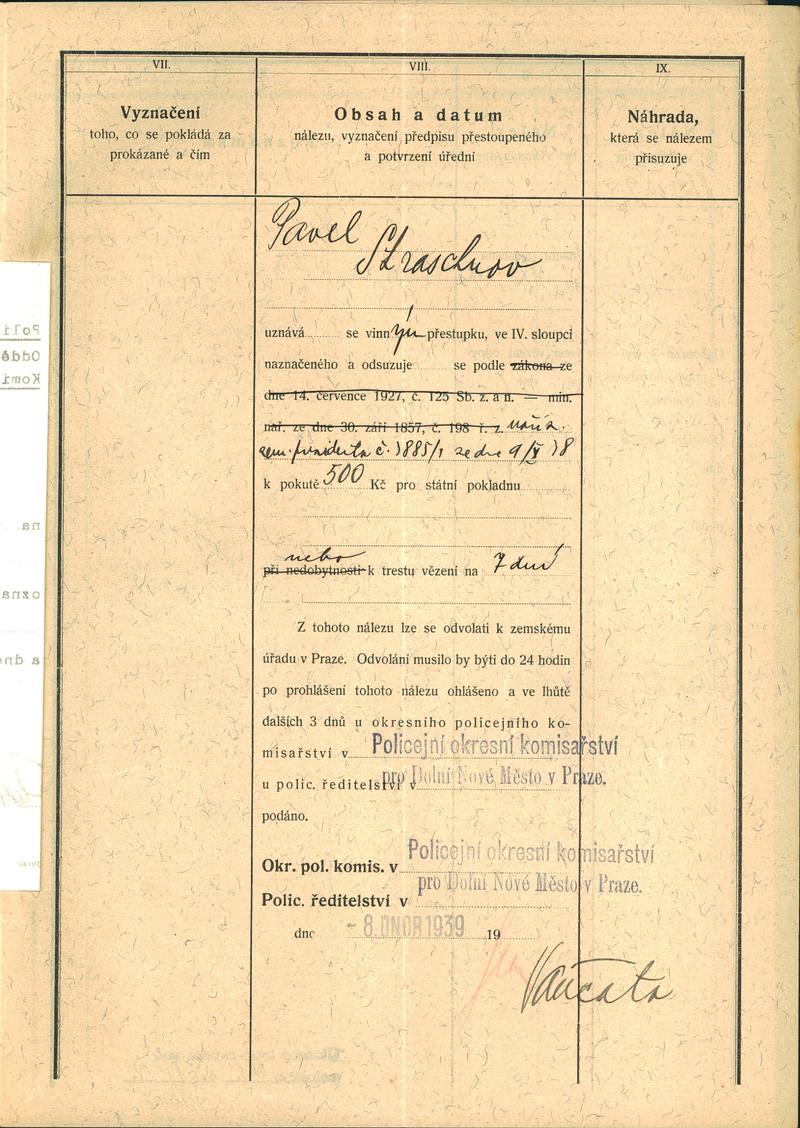 VII.
Vyznačení
toho, co se pokládá za
prokázané a čím
VIII.
Obsah a datum
nálezu, vyznačení předpisu přestoupeného
a potvrzení úřední
IX.
Náhrada,
která se nálezem
přisuzuje
Pavel
Straschnov
uznává se vinným přestupku, ve IV. sloupci
naznačeného a odsuzuje se podle zákona ze
dne 14. července 1927, č. 125 Sb. z. a n. — min.
nař. ze dne 30. září 1857, č. 198 ř. z. nař.
zem. presidenta č. 1885/1 ze dne 9/V 38
k pokutě 500 Kč pro státní pokladnu
nebo
při nedobytnosti k trestu vězení na 7 dnů
Z tohoto nálezu lze se odvolati k zemskému
úřadu v Praze. Odvolání musilo by býti do 24 hodin
po prohlášení tohoto nálezu ohlášeno a ve lhůtě
dalších 3 dnů u okresního policejního ko-
misařství v Policejní okresní komisařství
u polic. ředitelství v pro Dolní Nové Město v Praze.
podáno.
Okr. pol. komis. v Policejní okresní komisařství
Polic. ředitelství v pro Dolní Nové Město v Praze.
dne - 8. ÚNOR 1939 19